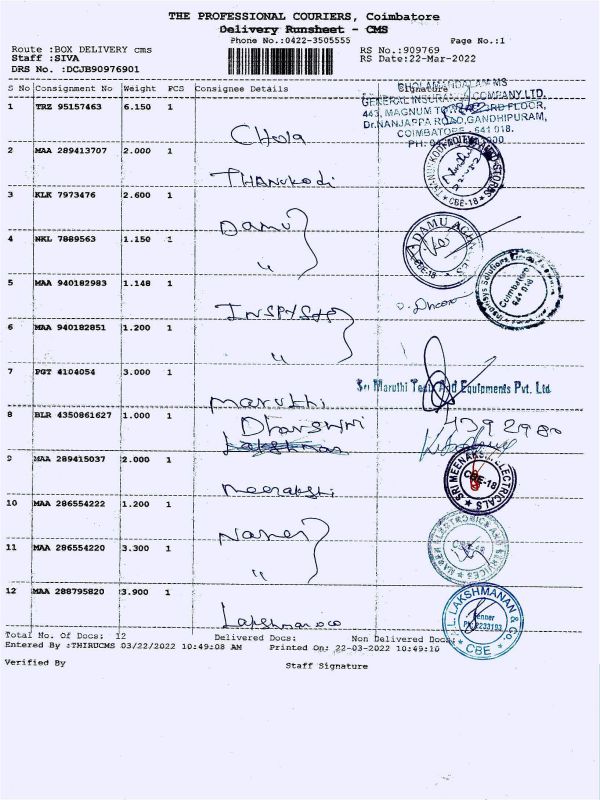 THE PROFESSIONAL COURIERS, Coimbatore
Delivery Runsheet - CMS
Phone No.:0422-3505555
Page No.:1
Route :BOX DELIVERY cms
RS No.:909769
Staff :SIVA
RS Date:22-Mar-2022
DRS No. :DCJB90976901
S No Consignment No Weight PCS Consignee Details Signature
CHOLAMANDALAM MS
GENERAL INSURANCE COMPANY LTD,
443, MAGNUM TOWER 3RD FLOOR,
Dr.NANJAPPA ROAD, GANDHIPURAM,
COIMBATORE - 641 018.
1 TRZ 95157463 6.150 1
Chola
2 MAA 289413707 2.000 1
Thanukodi
CBE-18
3 KLK 7973476 2.600 1
Damu
DAMU AGENCIES
CBE-18
4 NKL 7889563 1.150 1
"
Coimbatore
641 018
5 MAA 940182983 1.148 1
6 MAA 940182851 1.200 1
"
7 PGT 4104054 3.000 1
Sri Maruthi Tech And Equipments Pvt. Ltd.
Maruthi
8 BLR 4350861627 1.000 1
Dharshini
Lakshman
9 MAA 289415037 2.000 1
Meenakshi
SRI MEENAKSHI ELECTRICALS
CBE-18
10 MAA 286554222 1.200 1
11 MAA 286554220 3.300 1
"
12 MAA 288795820 3.900 1
L. LAKSHMANAN & Co.
CBE
Total No. Of Docs: 12 Delivered Docs: Non Delivered Docs:
Entered By :THIRUCMS 03/22/2022 10:49:08 AM Printed On: 22-03-2022 10:49:10
Verified By Staff Signature